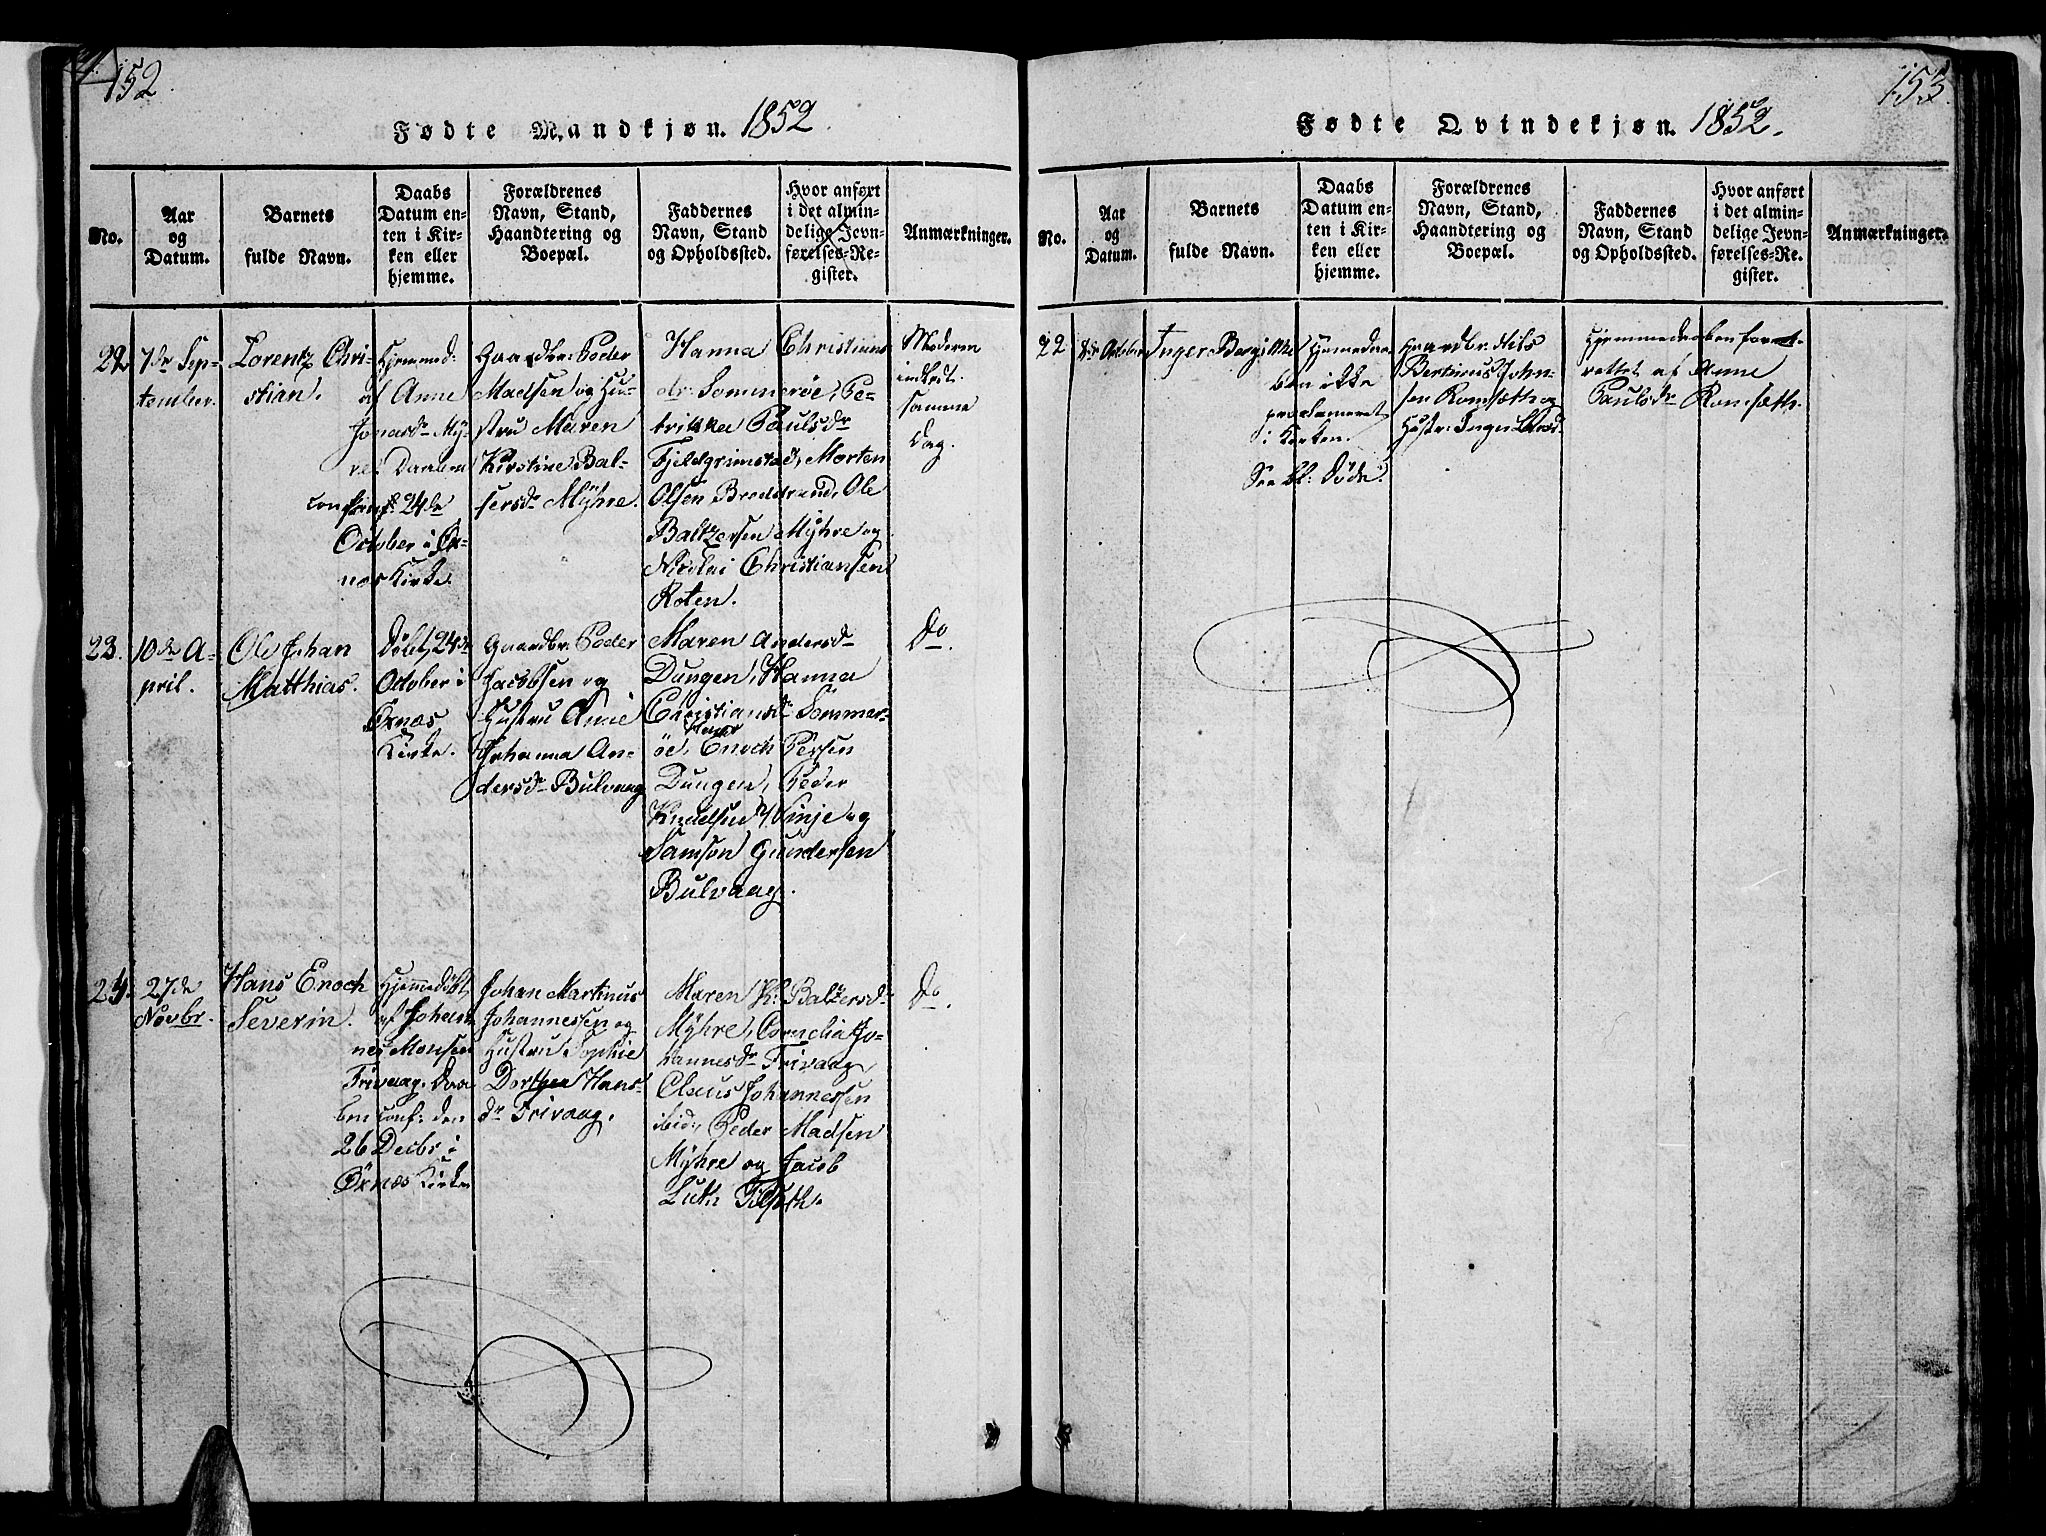 152.
Fødte Mandkjøn. 1852.
No.
Aar
og
Datum.
Barnets
fulde Navn.
Daabs
Datum en-
ten i Kir-
ken eller
hjemme.
Forældrenes
Navn, Stand,
Haandtering og
Boepæl.
Faddernes
Navn, Stand
og Opholdssted.
Hvor anført
i det almin-
delige Jevn-
førelses-Re-
gister.
Anmærkninger.
22
7de Sep-
tember.
Lorentz Chri-
stian.
Hjemmed:
af Anne
Jonasdr My-
re. Daaben
conf: 24de
October i Ør-
næs Kirke.
Gaardbr: Peder
Madsen og Hu-
stru Maren
Kirstine Bal-
sersdr Mÿhre.
Hanna Christians-
dr. Sommerøe, Pe-
trikka Paulsdr
Fjeldgrimstad, Morten
Olsen Bredstrand, Ole
Baltzersen Mÿhre og
Nicolai Christiansen
Roten.
Moderen
indledt
samme
Dag.
23.
10de A-
pril.
Ole Johan
Matthias.
Døbt 24de
October i
Ørnæs
Kirke.
Gaardbr: Peder
Jacobsen og
Hustru Anne
Johanna An-
dersdr Bulvaag
Maren Andersdr
Dungen, Hanna
Christiansdr Sommer-
øe, Enoch Persen
Dungen, Peder
Knudsen Vinje og
Samson Gundersen
Bulvaag.
Do.
24.
27de
Novbr.
Hans Enoch
Severin.
Hjemmedøbt
af Johan-
nes Monsen
Frivaag. Daa-
ben conf: den
26 Decbr i
Ørnæs Kirke
Johan Martinus
Johannessen og
Hustru Sophie
Dorthea Hans-
dr Frivaag.
Maren K: Balzersdr
Mÿhre, Cornelia Jo-
hannesdr Frivaag
Claus Johannessen
ibid:, Peder Madsen
Mÿhre og Jacob
Do.
153.
Fødte Qvindekjøn. 1852.
No.
Aar
og
Datum.
Barnets
fulde Navn.
Daabs
Datum en-
ten i Kir-
ken eller
hjemme.
Forældrenes
Navn, Stand,
Haandtering og
Boepæl.
Faddernes
Navn, Stand
og Opholdssted.
Hvor anført
i det almin-
delige Jevn-
førelses-Re-
gister.
Anmærkninger.
22.
8de October
Inger Bergitte
Hjemmedaa-
ben ikke
proclameret
i Kirken.
See bl: Døde.
Gaardbr. Nils
Bertinus John-
sen Romsæth og
Hustr: Inger
Hjemmedaaben forret-
rettet af Anne
Paulsdr Romsæth.